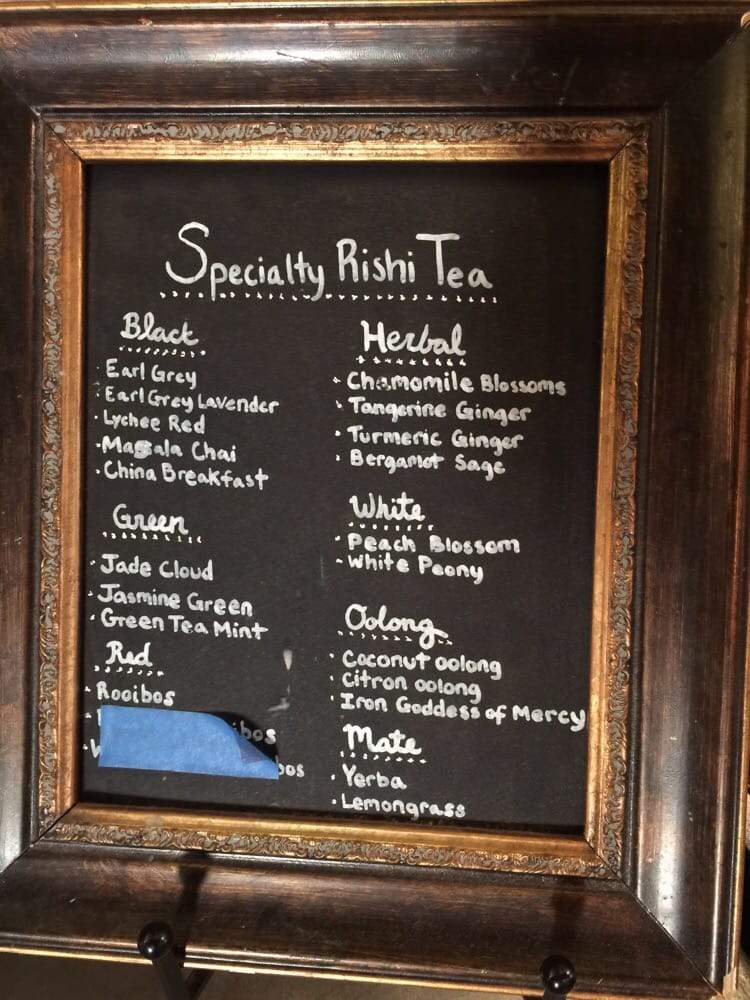 Specialty Rishi Tea
Black
· Earl Grey
· Earl Grey Lavender
· Lychee Red
· Massala Chai
· China Breakfast
Green
· Jade Cloud
· Jasmine Green
· Green Tea Mint
Red
· Rooibos
Herbal
· Chamomile Blossoms
· Tangerine Ginger
· Turmeric Ginger
· Bergamot Sage
White
· Peach Blossom
· White Peony
Oolong
· Coconut oolong
· Citron oolong
· Iron Goddess of Mercy
Mate
· Yerba
· Lemongrass